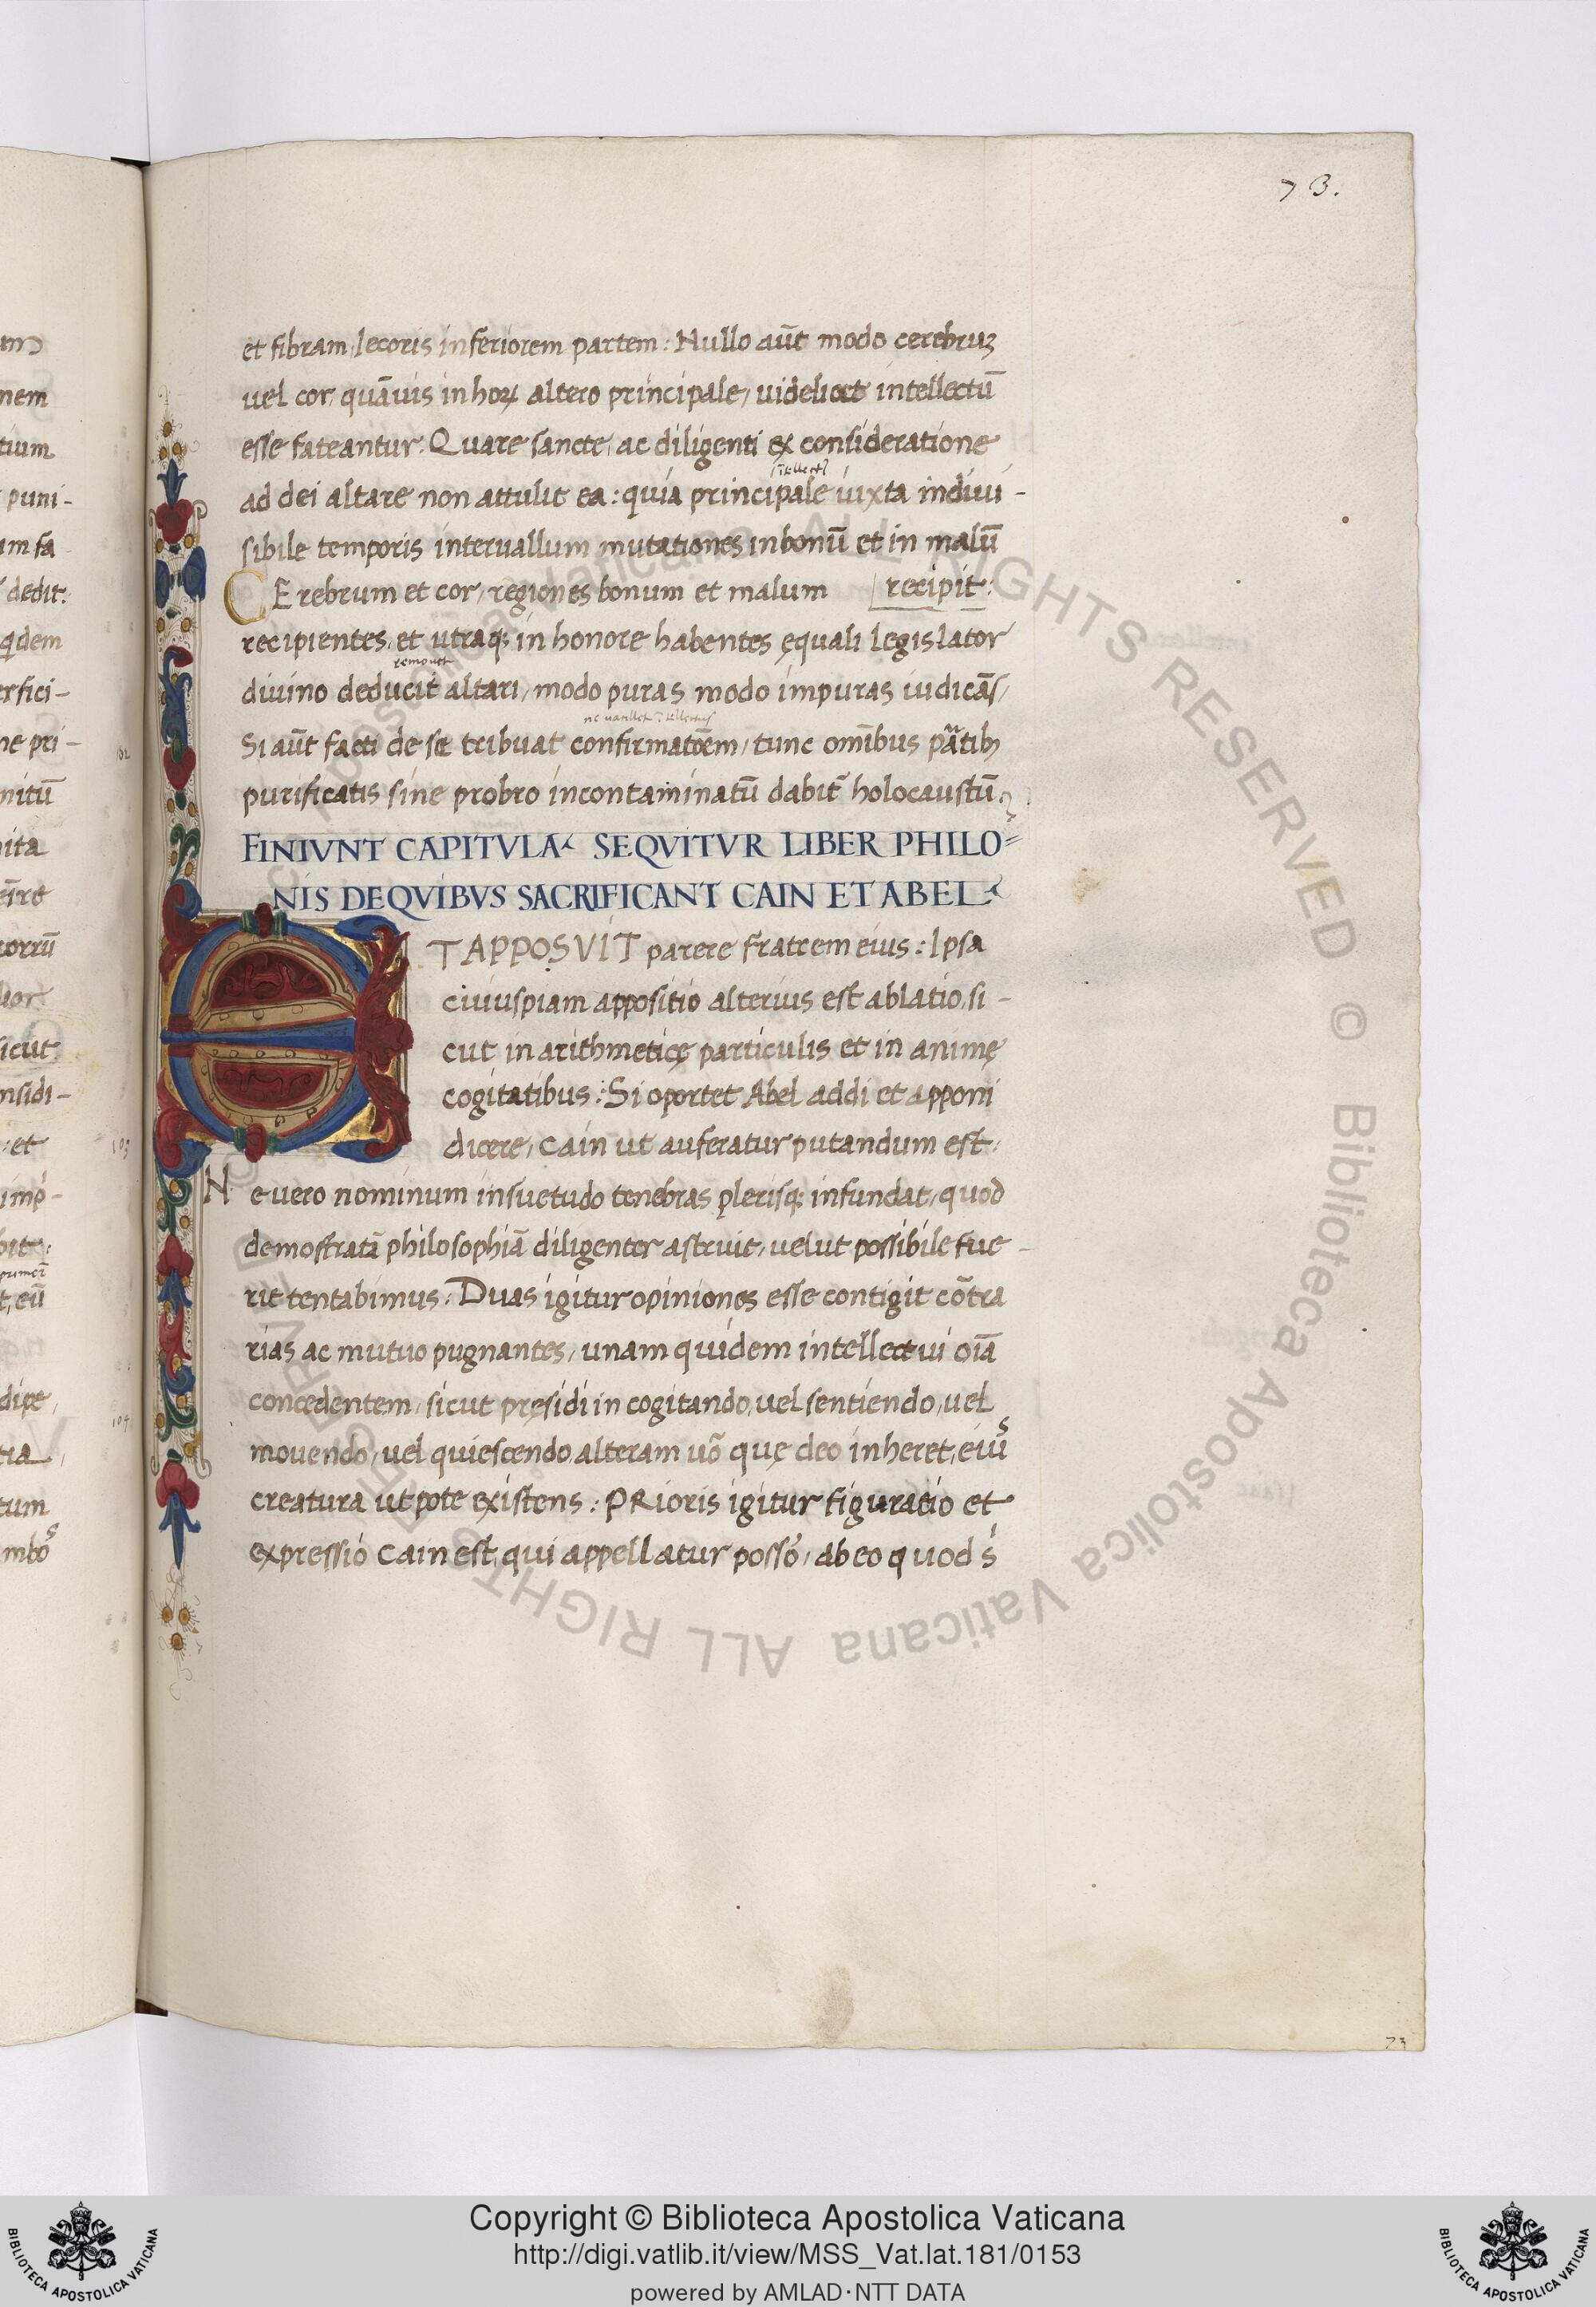 73.
et fibram, Iecoris inferiorem partem: Nullo aūt modo cerebruꝫ
uel cor, quāuis in hoꝝ altero principale, uidelicet intellectū
esse fateantur. Quare sancte, ac diligenti ex consideratione
ad dei altare non attulit ea: quia principale iuxta indiui-
sibile temporis interuallum mutationes in bonū et in malū
CErebrum et cor, regiones bonum et malum recipit:
recipientes, et utraqꝫ in honore habentes ęquali legislator
remouet
diuino deducit altari, modo puras modo impuras iudicās,
Si aūt facti de se tribuat confirmatōem, tunc omībus
purificatis sine probro incontaminatū dabit̄ holocaustū
FINIVNT CAPITVLA SEQVITVR LIBER PHILO=
NIS DE QVIBVS SACRIFICANT CAIN ET ABEL
ET APPOSVIT parere fratrem eius: Ipsa
cuiuspiam appositio alterius est ablatio, si-
cut in arithmeticę particulis et in animę
cogitatibus: Si oportet Abel addi et apponi
dicere, Cain ut auferatur putandum est.
Ne uero nominum insuetudo tenebras plerisqꝫ infundat, quod
demostratā philosophiā diligenter astruit, uelut possibile fue-
rit tentabimus: Duas igitur opiniones esse contigit cōtra
rias ac mutuo pugnantes, unam quidem intellectui oīa
concedentem, sicut pręsidi in cogitando, uel sentiendo, uel
mouendo, uel quiescendo, alteram uō quę deo inheret, eius
creatura utpote existens: PRioris igitur figuratio et
expressio Cain est, qui appellatur possō, ab eo quod s
73
Copyright © Biblioteca Apostolica Vaticana
http://digi.vatlib.it/view/MSS_Vat.lat.181/0153
powered by AMLAD·NTT DATA
BIBLIOTECA APOSTOLICA VATICANA
BIBLIOTECA APOSTOLICA VATICANA